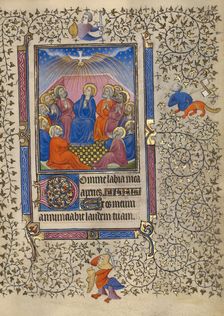 Domine labia mea
aperies
Et os meum
annunciabit laudem tuam.